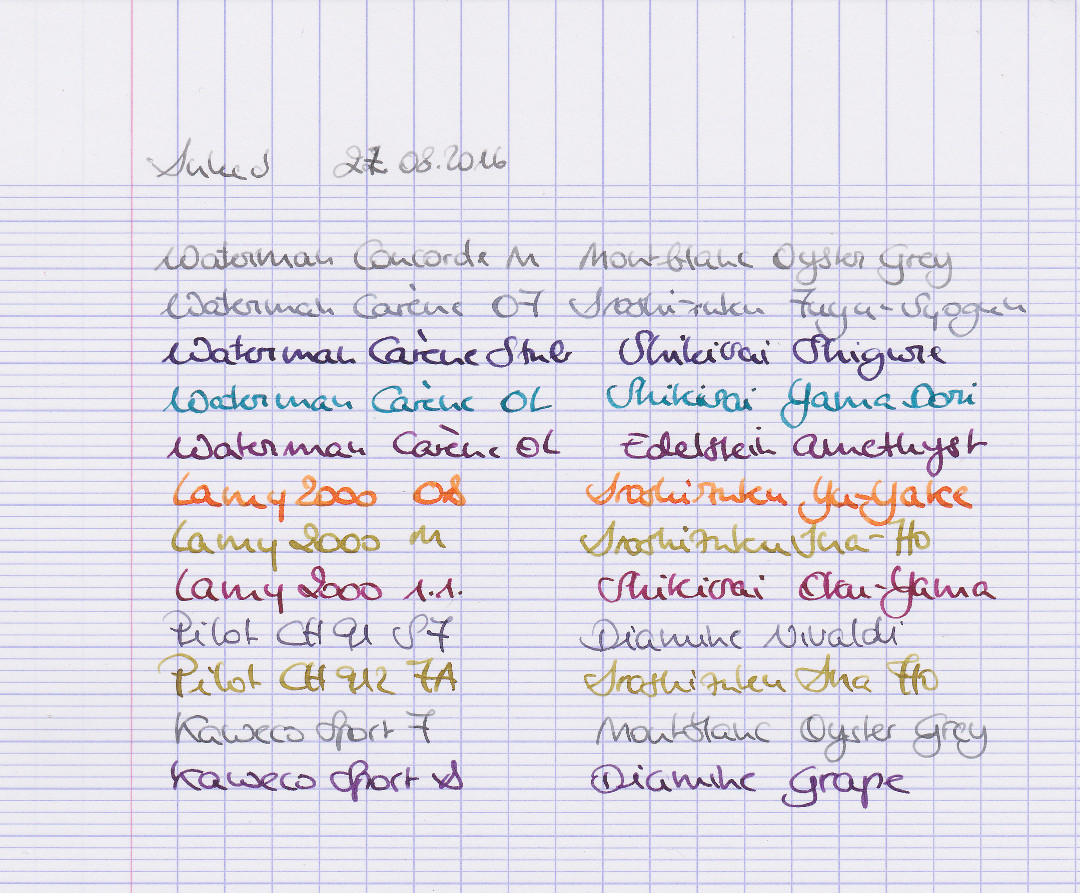 Inked 27.08.2016
Waterman Concorde M Montblanc Oyster Grey
Waterman Carène OF Iroshizuku Fuyu-Syogun
Waterman Carène Stub Shikisai Shigure
Waterman Carène OL Shikisai Yama Dori
Waterman Carène OL Edelstein Amethyst
Lamy 2000 OB Iroshizuku Yu-Yake
Lamy 2000 M Iroshizuku Ina-Ho
Lamy 2000 1.1. Shikisai Oku-Yama
Pilot CH 91 SF Diamine Vivaldi
Pilot CH 912 FA Iroshizuku Ina Ho
Kaweco Sport F Montblanc Oyster Grey
Kaweco Sport Diamine Grape